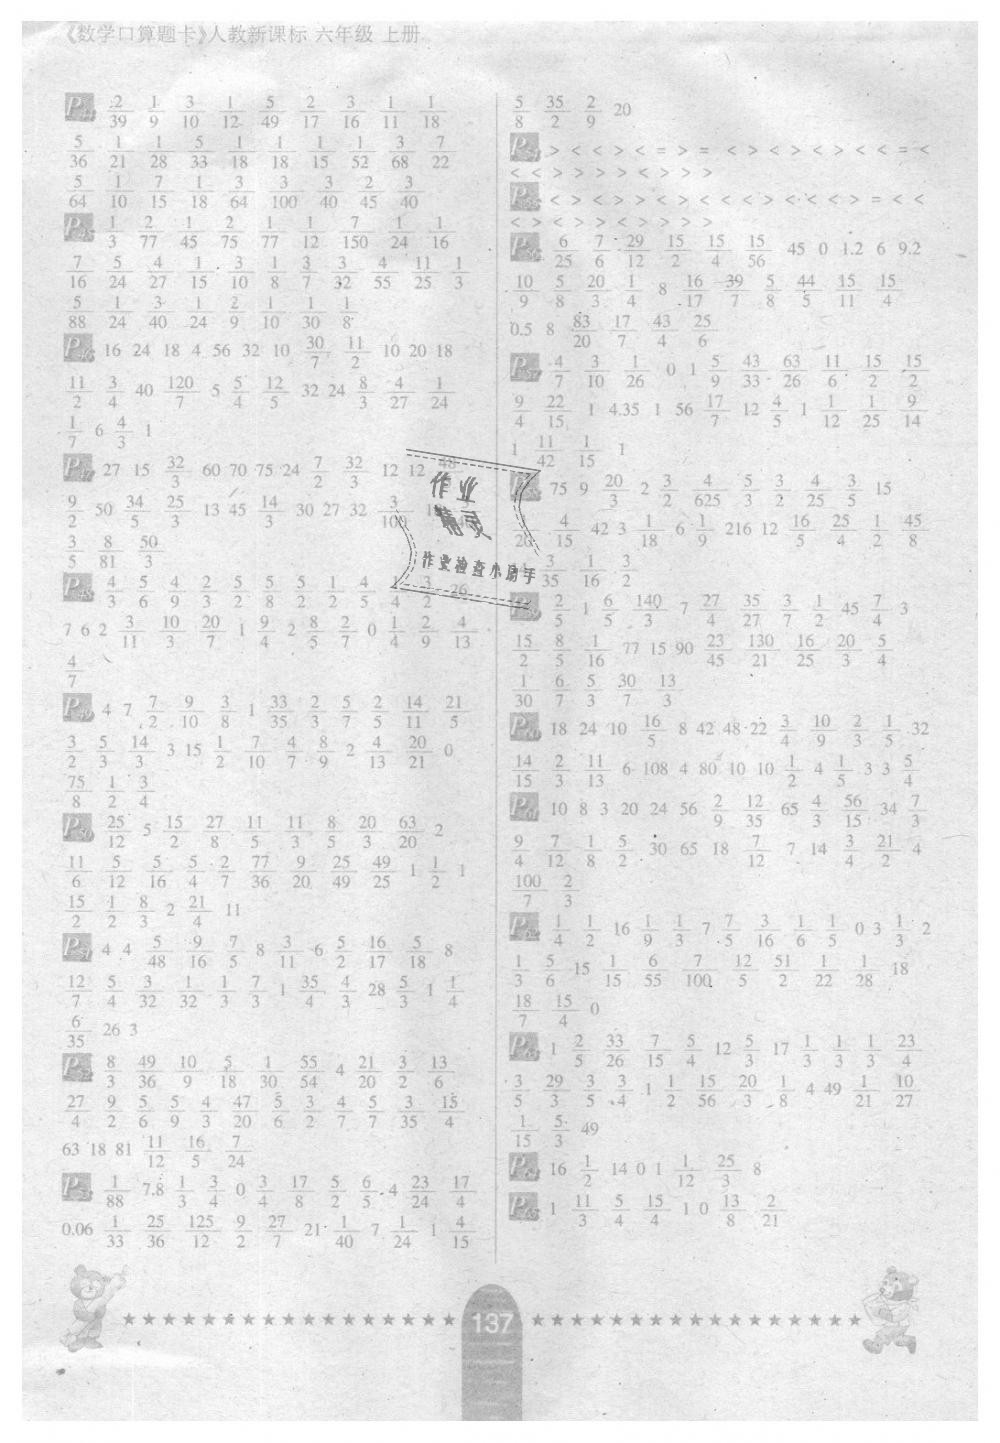 《数学口算题卡》人教新课标 六年级 上册
P44 2/39 1/9 3/10 1/12 5/49 2/17 3/16 1/11 1/18
5/36 1/21 1/28 5/33 1/18 1/18 1/15 1/52 3/68 7/22
5/64 1/10 7/15 1/18 3/64 3/100 3/40 2/45 3/40
P45 1/3 2/77 1/45 2/75 1/77 1/12 7/150 1/24 1/16
7/16 5/24 4/27 1/15 3/10 1/8 3/7 3/32 4/55 11/25 1/3
5/88 1/24 3/40 1/24 2/9 1/10 1/30 1/8
P46 16 24 18 4 56 32 10 30/7 11/2 10 20 18
11/2 3/4 40 120/7 5 5/4 12/5 32 24 8/3 4/27 1/24
1/7 6 4/3 1
P47 27 15 32/3 60 70 75 24 7/2 32/3 12 12
9/2 50 34/5 25/3 13 45 14/3 30 27 32 3/100
3/5 8/81 50/3
P48 4/3 5/6 4/9 2/3 5/2 5/8 5/2 1/2 4/5 1/4 3/2
7 6 2 3/11 10/3 20/7 1 9/4 2 8/5 2/7 0 1/4 2/9 4/13
4/7
P49 4 7 7/2 9/10 3/8 1 33/35 2/3 5/7 2/5 14/11 21/5
3/2 5/3 14/3 3 15 1/2 7/10 4/7 8/9 2 4/13 20/21 0
75/8 1/2 3/4
P50 25/12 5 15/2 27/8 11/5 11/3 8/5 20/3 63/20 2
11/6 5/12 5/16 5/4 2/7 77/36 9/20 25/49 49/25 1 1/2 1
15/2 1/2 8/3 2 21/4 11
P51 4 4 5/48 9/16 7/5 8 3/11 6 5/2 16/17 5/18 8
12/7 5/4 3/32 1/32 1/3 7/3 1 35/4 4/3 28 5/3 1 1/4
6/35 26 3
P52 8/3 49/36 10/9 5/18 1/30 55/54 4 21/20 3/2 13/6
27/4 9/2 5/6 5/9 4/3 47/20 5/6 3/2 4/7 5/7 3/35 15/4
63 18 81 11/12 16/5 7/24
P53 1/88 7.8 1/3 3/4 0 3/4 17/8 5/2 6/5 4 23/24 17/4
0.06 1/33 25/36 125/12 9/2 27/7 21 1/40 7 1/24 1 4/15
5/8 35/2 2/9 20
P54 > < < > < = > = < > < > < > < < = <
< < > > > < > > >
P55 < > < > > < > < < > < < < > = < <
< > < > > > > > >
P56 6/25 7/6 29/12 15/2 15/4 15/56 45 0 1.2 6 9.2
10/9 5/8 20/3 1/4 8 16/17 39/7 5/8 44/5 15/11 15/4
0.5 8 83/20 17/7 43/4 25/6
P57 4/7 3/10 1/26 0 1 5/9 43/33 63/26 11/6 15/2 15/2
9/4 22/15 1 4.35 1 56 17/7 12 4/5 1 1/12 1/25 9/14
1 11/42 1/15 1
75 9 20/3 2 3/2 4/625 5/3 3/4 4/25 3/5 15
4/15 42 3 1/18 6 1/9 216 12 16/5 25/4 1/2 45/8
3/35 1/16 3/2
P59 2/5 1 6/5 140/3 7 27/4 35/27 3/7 1/2 45 7/4 3
15/2 8/5 1/16 77 15 90 23/45 130/21 16/25 20/3 5/4
1/30 6/7 5/3 30/7 13/3
P60 18 24 10 16/5 8 42 48 22 3/4 10/9 2/3 1/5 32
14/15 2/3 11/13 6 108 4 80 10 10 1/2 4 1/5 3 3 5/4
P61 10 8 3 20 24 56 2/9 12/35 65 4/3 56/15 34 7/3
9/4 7/12 1/8 5/2 30 65 18 7/12 7 14 3/4 21/2 4
100/7 2/3
P62 1/4 1/2 16 1/9 1/3 7 7/5 3/16 1/6 1/5 0 3 1/3 2
1/3 5/6 15 1/15 6/55 7/100 12/5 51/2 1/22 1/28 18
18/7 15/4 0
P63 1 2/5 33/26 7/15 5/4 12 5/3 17 1/3 1/3 1/3 23/4
3/5 29/3 3/5 3/4 1 1/2 15/56 20/3 1/8 4 49 1/21 10/27
1/15 5/3 49
P64 16 1/2 14 0 1 1/12 25/3 8
P65 1 11/3 5/4 15/4 1 0 13/8 2/21
作业
精灵
作业检查小助手
137